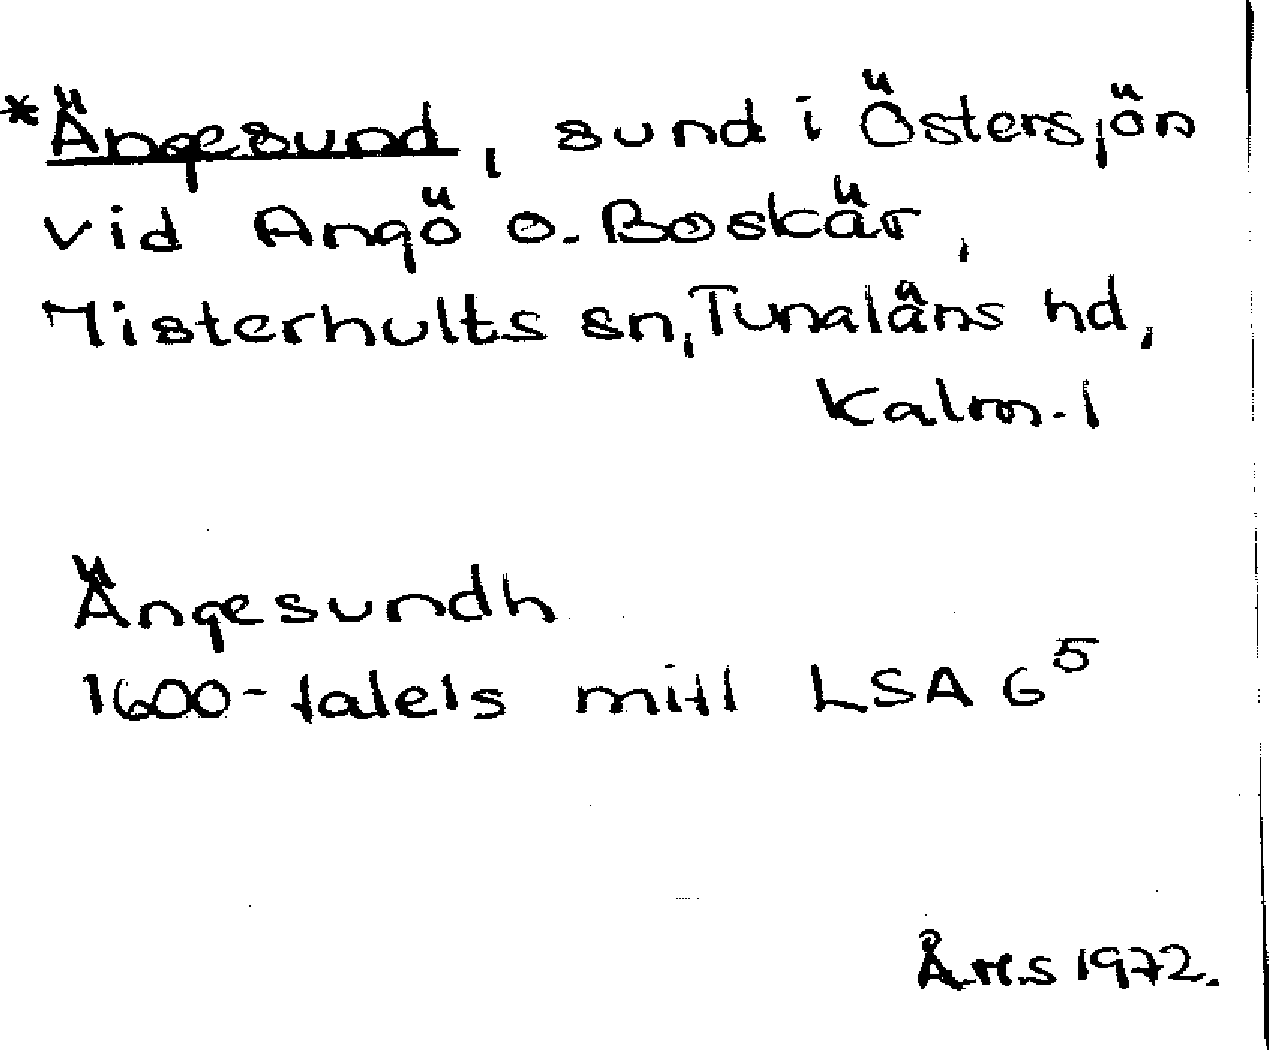 *Ängesund, sund i Östersjön
vid Angö o. Boskär,
Misterhults sn, Tunaläns hd,
Kalm. l
Ängesundh
1600-talets mitt LSA G⁵
1972.